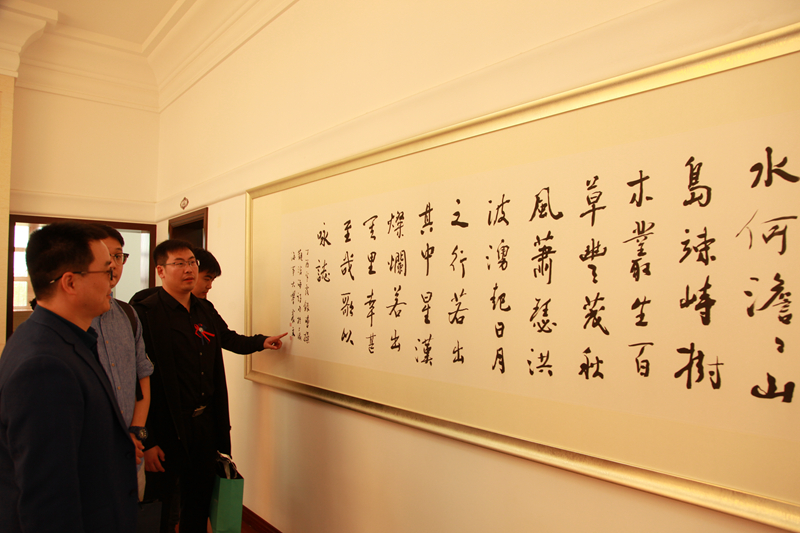 水何澹〻山
島竦峙樹
木叢生百
草豐茂秋
風蕭瑟洪
波湧起日月
之行若出
其中星漢
燦爛若出
其里幸甚
至哉歌以
詠誌